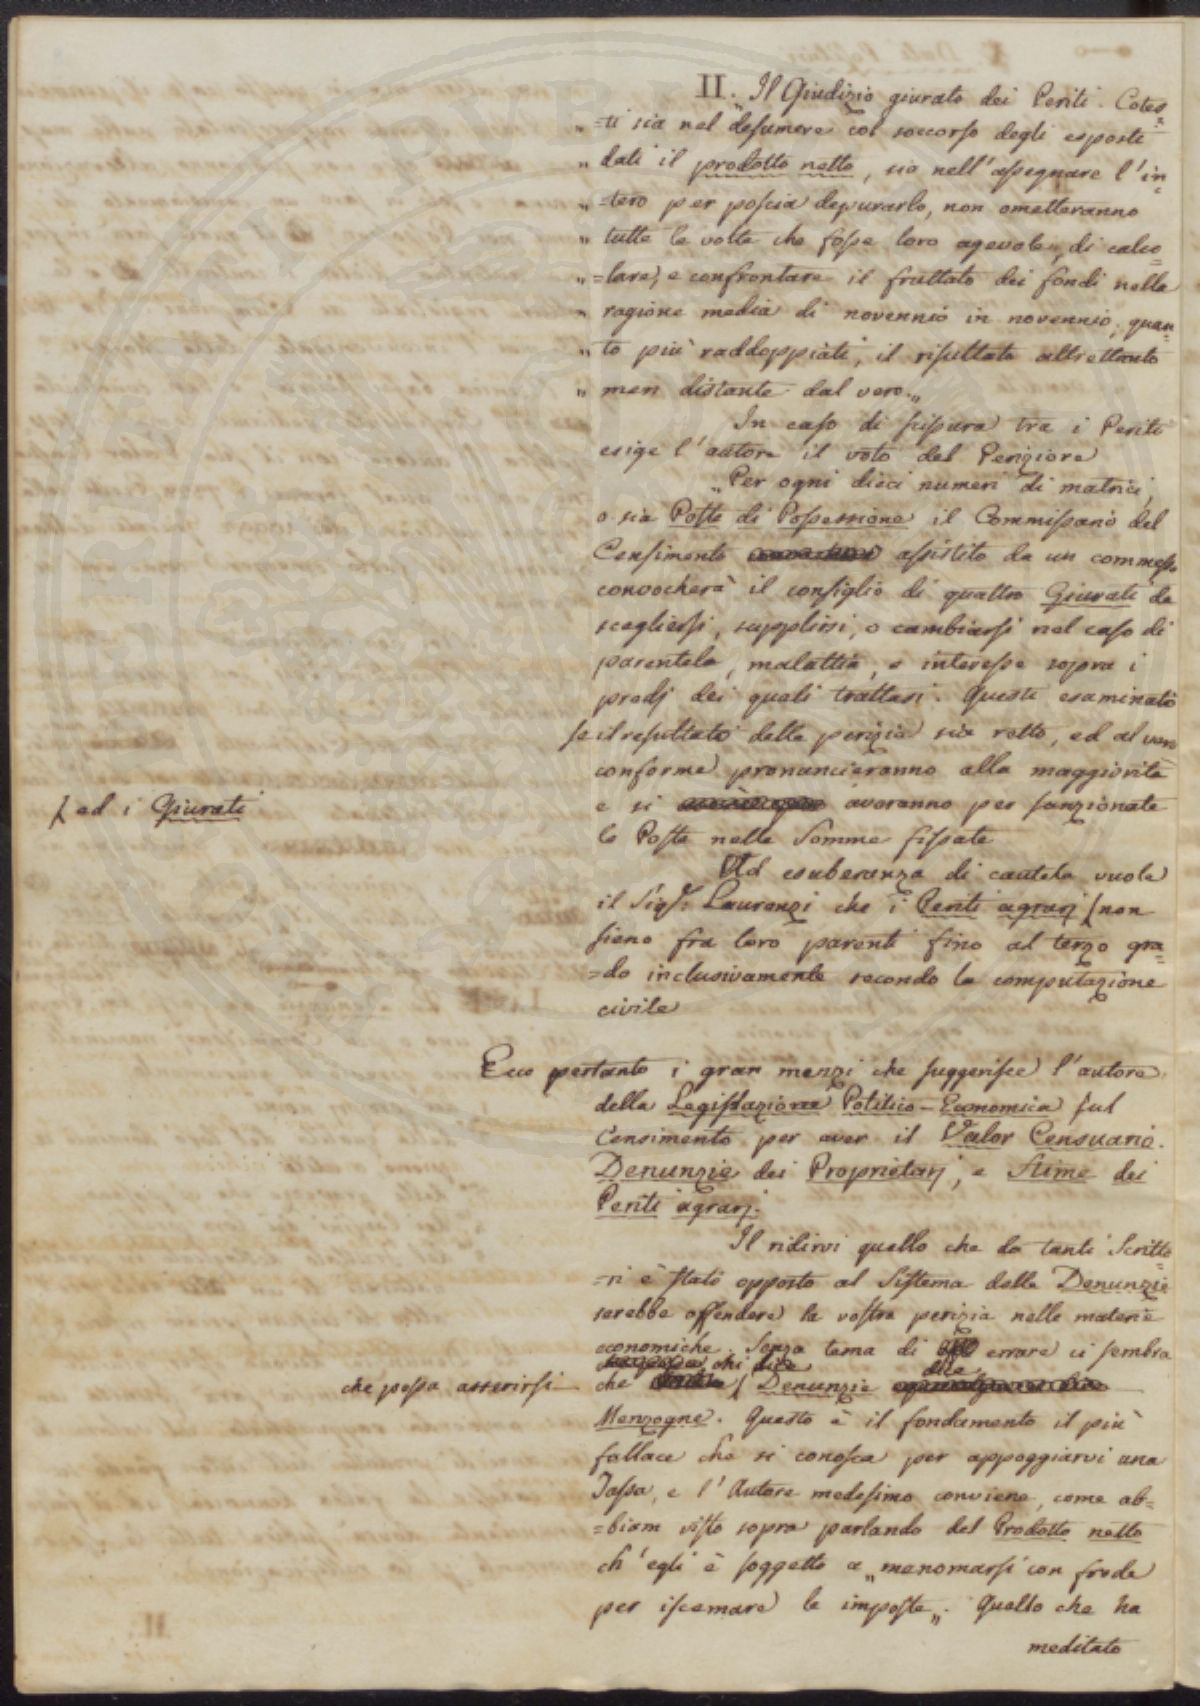 II. Il Giudizio giurato dei Periti. Cotes
„ =ti sia nel desumere col soccorso degli esposti
„ dati il prodotto netto, sia nell'assegnare l'in
„ =tero per poscia depurarlo, non ometteranno
„ tutte le volte che fosse loro agevole, di calco
„ =lare, e confrontare il fruttato dei fondi nella
„ ragione media di novennio in novennio; quan
„ to più raddoppiati, il risultato altrettanto
„ men distante dal vero.„
In caso di sissura tra i Periti
esige l'autore il voto del Periziore
„Per ogni dieci numeri di matrici,
o sia Poste di Possessione il Commissario del
Censimento assistito da un commesso
convocherà il consiglio di quattro Giurati da
scegliersi, supplirsi, o cambiarsi nel caso di
parentela, malattia, e interesse sopra i
predj dei quali trattasi. Questi esaminato
se il resultato della perizia sia retto, ed al vero
conforme pronuncieranno alla maggiorità
e si avranno per sanzionate
le Poste nelle Somme fissate
Ad esuberanza di cautela vuole
il Sigr. Laurenzi che i Periti agrarj ⌠ non
⌠ ed i Giurati
sieno fra loro parenti fino al terzo gra
=do inclusivamente secondo la computazione
civile
Ecco pertanto i gran mezzi che suggerisce l'autore
della Legislazione Politico-Economica sul
Censimento per aver il Valor Censuario.
Denunzie dei Proprietarj, e Stime dei
Periti agrarj.
Il ridirvi quello che da tanti Scritto
=ri è stato opposto al Sistema delle Denunzie
sarebbe offendere la vostra perizia nelle materie
economiche. Senza tema di errare ci sembra
chi dice
dice
che possa asserirsi
che ⌠ Denunzie
Menzogne. Questo è il fondamento il più
fallace che si conosca per appoggiarvi una
Tassa, e l'Autore medesimo conviene, come ab=
=biam visto sopra parlando del Prodotto netto
ch'egli è soggetto a „menomarsi con frode
per iscemare le imposte„. Quello che ha
meditato